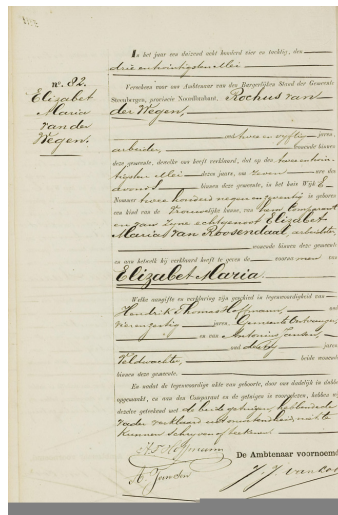 In het jaar een duizend acht honderd vier en tachtig, den
drie en twintigsten Mei
No. 82.
Elizabet
Maria
van der
Wegen.
Verscheen voor ons Ambtenaar van den Burgerlijken Stand der Gemeente
Steenbergen, provincie Noordbrabant, Rochus van
der Wegen,
oud twee en vyftig jaren
arbeider, wonende binnen
deze gemeente, dewelke ons heeft verklaard, dat op den twee en twin
tigsten Mei dezes jaars, om zeven ure des
avonds binnen deze gemeente, in het huis Wijk E
Nommer twee honderd negen en geboren
een kind van de Vrouwelijke kunne, van hem Comparant
en van zyne echtgenoot Elizabet
Maria van Roosendaal, arbeidster,
wonende binnen deze gemeente
en aan hetwelk hij verklaard heeft te geven de voornamen van
Elizabet Maria.
Welke aangifte en verklaring zijn geschied in tegenwoordigheid van
Hendrik Thomas Hoffmann, oud
vierenzestig jaren Gemeente Ontvanger,
en van Antonius Jansen,
oud jaren
Veldwachter, beide wonende
binnen deze gemeente.
En omdat de tegenwoordige akte van geboorte, door ons dadelijk in dubbel
opgemaakt, en aan den Comparant en de getuigen is voorgelezen, hebben wij
dezelve geteekend met de beide getuigen, hebbende de
vader verklaard uit onwetendheid, niet te
kunnen schryven of teekenen.
H. T. Hoffmann
De Ambtenaar voornoemd
A. Jansen